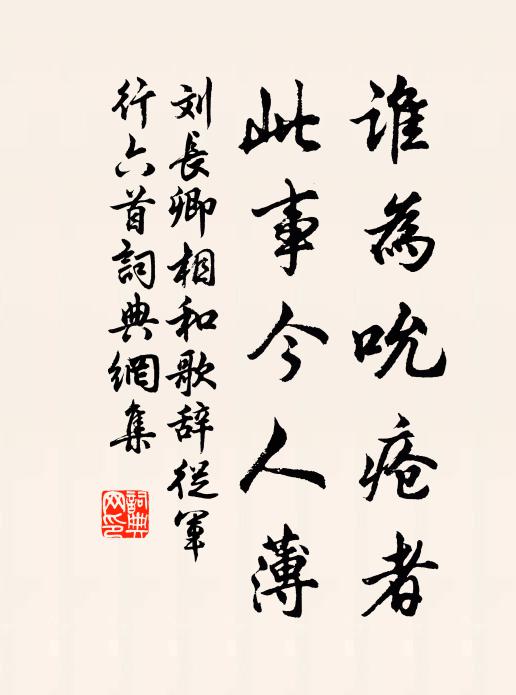 谁為吮疮者
此事今人薄
刘長卿相和歌辞從軍
行六首詞典網集
詞典网印